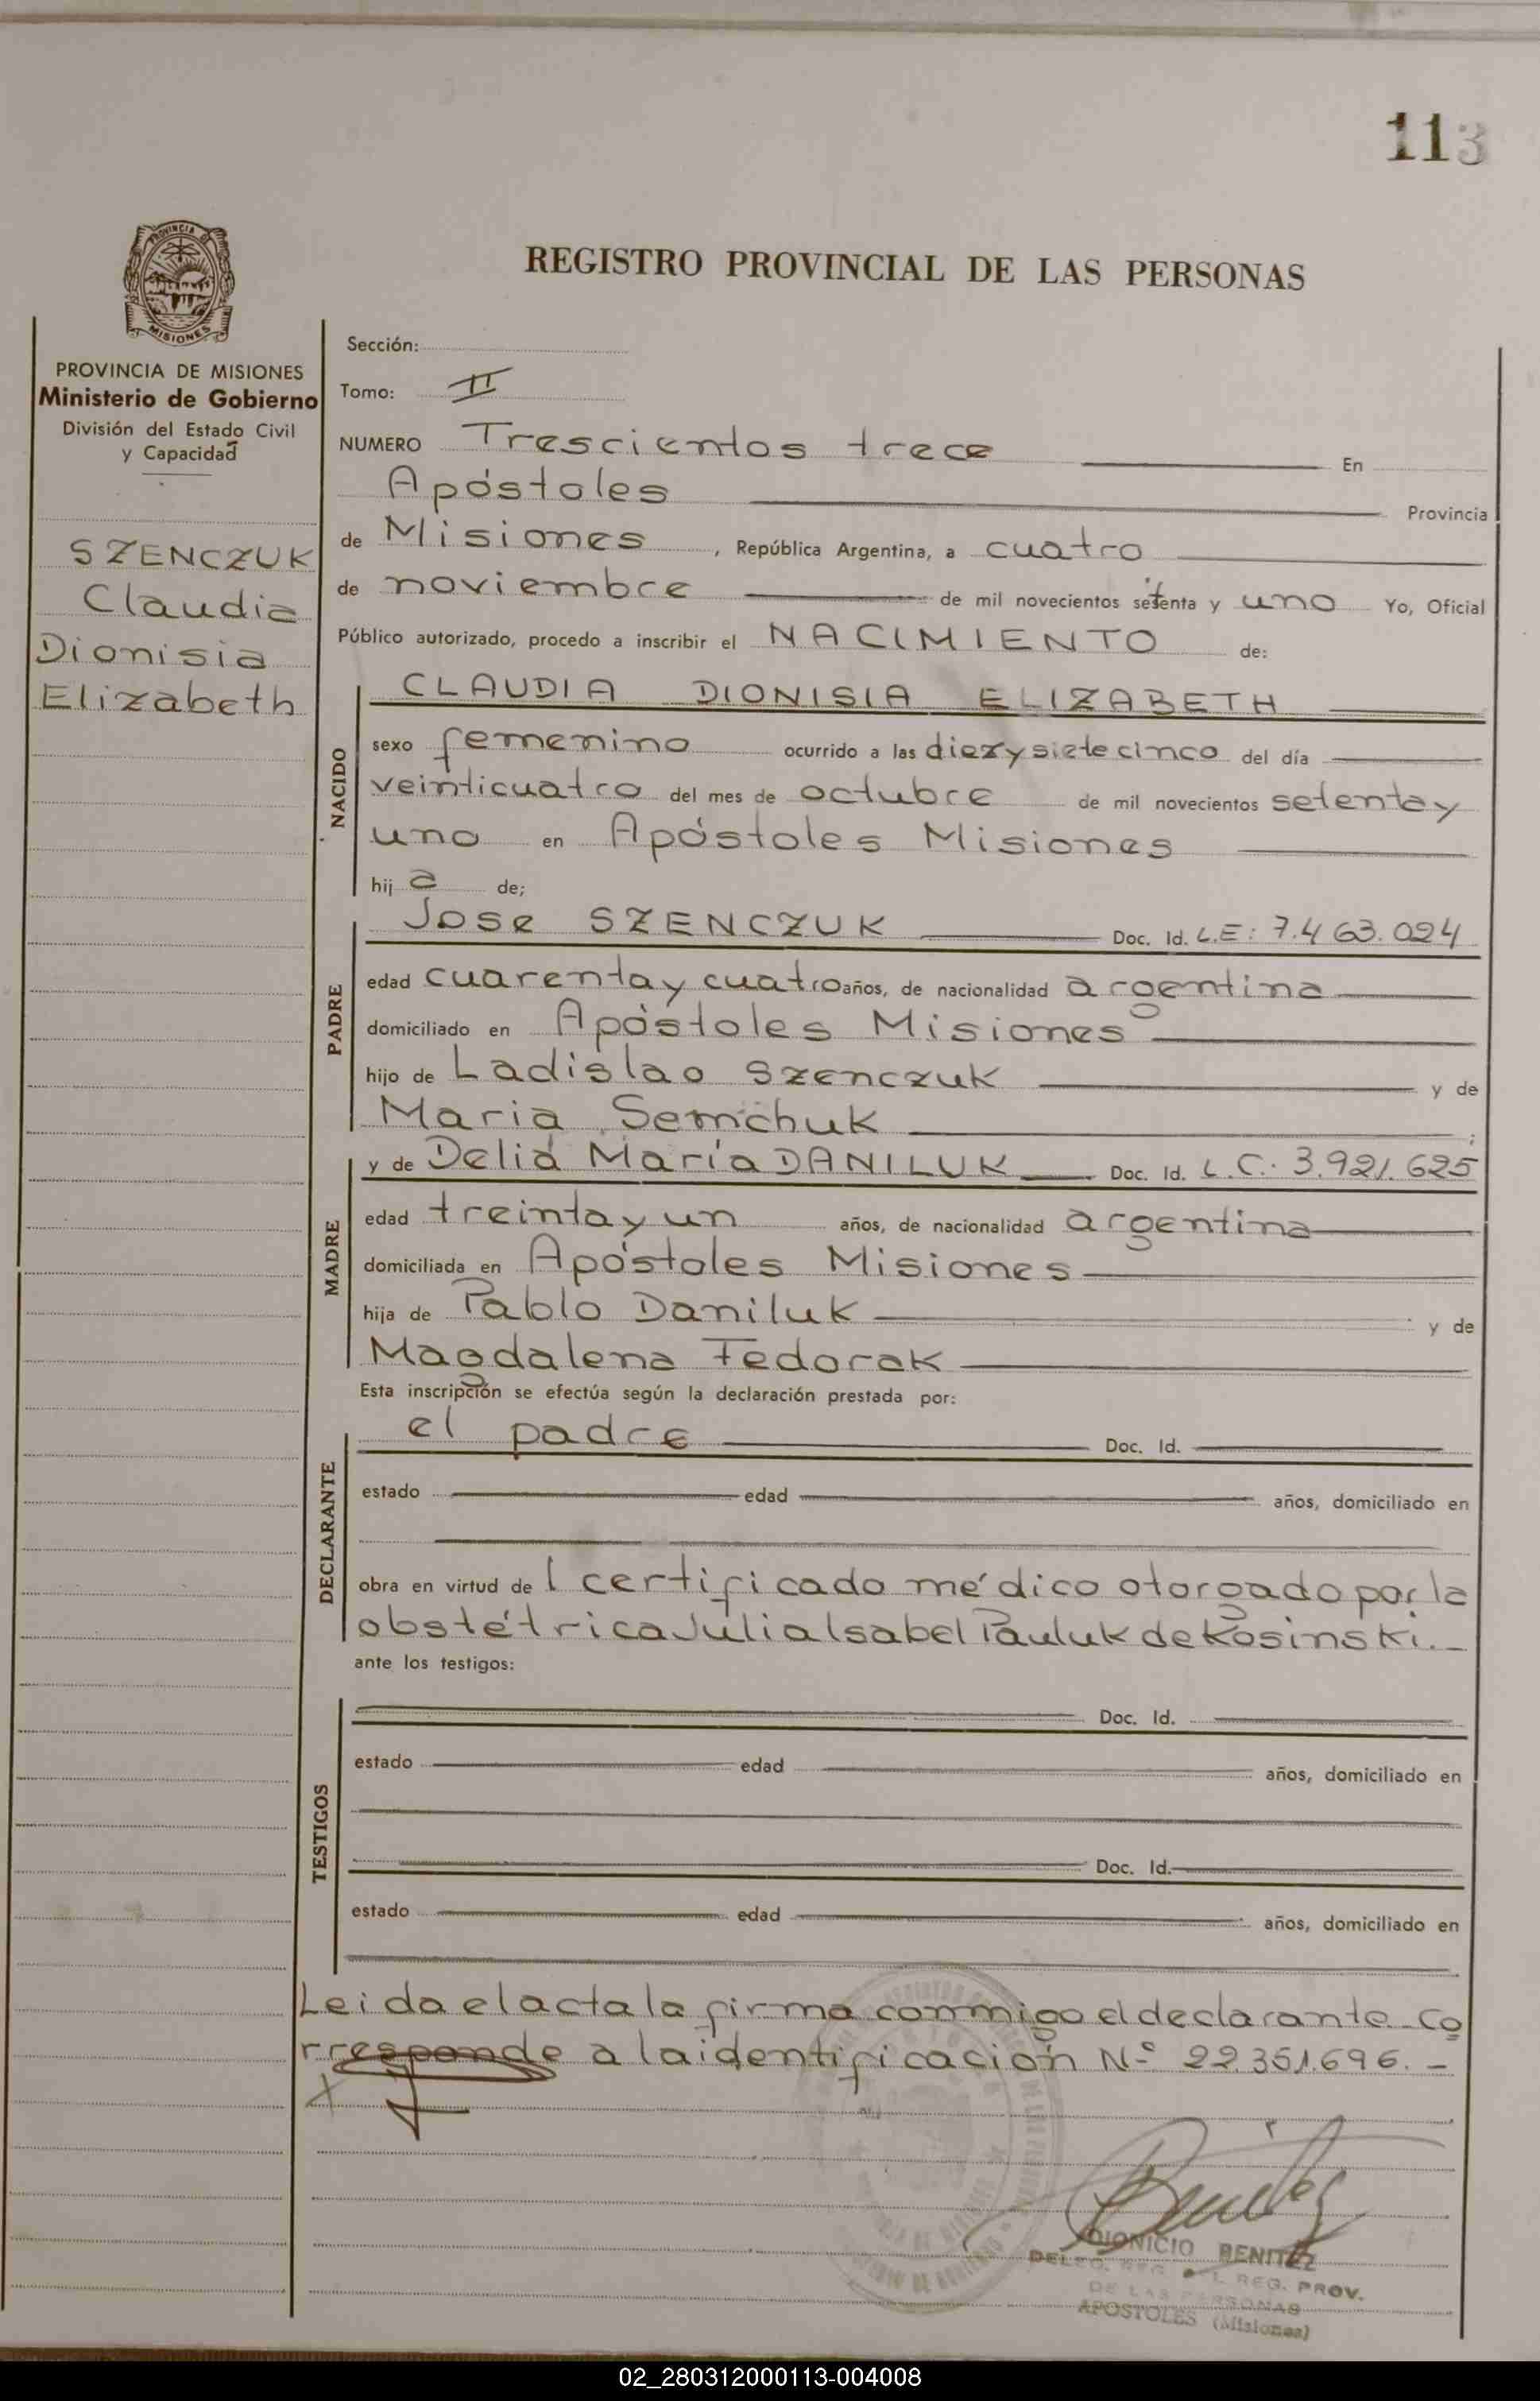 113
PROVINCIA DE
MISIONES
REGISTRO PROVINCIAL DE LAS PERSONAS
PROVINCIA DE MISIONES
Ministerio de Gobierno
División del Estado Civil
y Capacidad
SZENCZUK
Claudia
Dionisia
Elizabeth
Sección:
Tomo: II
NUMERO Trescientos trece En
Apóstoles Provincia
de Misiones, República Argentina, a cuatro
de noviembre de mil novecientos setenta y uno Yo, Oficial
Público autorizado, procedo a inscribir el NACIMIENTO de:
NACIDO
CLAUDIA DIONISIA ELIZABETH
sexo femenino ocurrido a las diez y siete cinco del día
veinticuatro del mes de octubre de mil novecientos setenta y
uno en Apóstoles Misiones
hij a de;
PADRE
Jose SZENCZUK Doc. Id. L.E: 7.463.024
edad cuarenta y cuatro años, de nacionalidad argentina
domiciliado en Apóstoles Misiones
hijo de Ladislao Szenczuk y de
Maria Semchuk ;
MADRE
y de Delia María DANILUK Doc. Id. L.C.: 3.921.625
edad treinta y un años, de nacionalidad argentina
domiciliada en Apóstoles Misiones
hija de Pablo Daniluk y de
Magdalena Fedorak
Esta inscripción se efectúa según la declaración prestada por:
DECLARANTE
el padre Doc. Id.
estado edad años, domiciliado en
obra en virtud de l certificado médico otorgado por la
obstétrica Julia Isabel Pauluk de Kosinski.-
ante los testigos:
TESTIGOS
Doc. Id.
estado edad años, domiciliado en
Doc. Id.
estado edad años, domiciliado en
Leida el acta la firma conmigo el declarante. Co
rresponde a la identificación N° 22.351.696.-
Benitez
DIONICIO BENITEZ
REG. PROV.
DE LAS PERSONAS
APOSTOLES (Misiones)
02_280312000113-004008